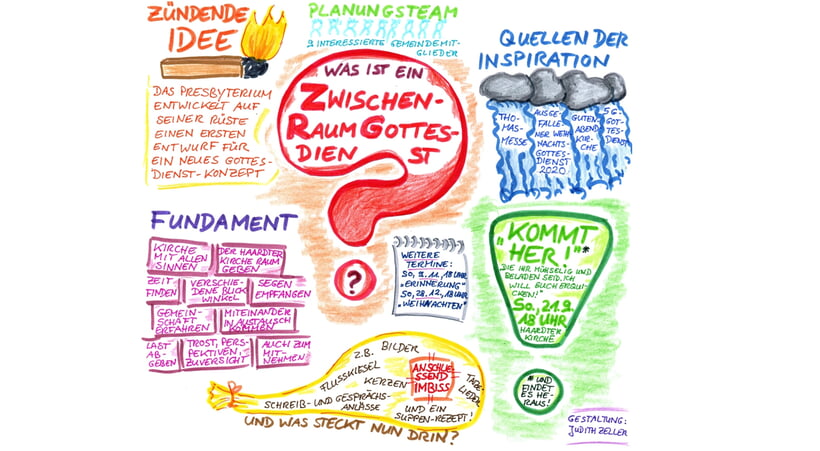 ZÜNDENDE
IDEE
DAS PRESBYTERIUM
ENTWICKELT AUF
SEINER RÜSTE
EINEN ERSTEN
ENTWURF FÜR
EIN NEUES GOTTES-
DIENST-KONZEPT
PLANUNGSTEAM
9 INTERESSIERTE GEMEINDEMIT-
GLIEDER
WAS IST EIN
ZWISCHEN-
RAUMGOTTES-
DIEN ST
?
QUELLEN DER
INSPIRATION
THO-
MAS-
MESSE
AUSGE-
FALLE-
NER WEIH-
NACHTS-
GOTTES-
DIENST
2020
GUTEN-
ABEND
KIR-
CHE
5G-
GOT-
TES-
DIENST
FUNDAMENT
KIRCHE
MIT ALLEN
SINNEN
DER HAARDTER
KIRCHE RAUM
GEBEN
ZEIT
FINDEN
VERSCHIE-
DENE BLICK
WINKEL
SEGEN
EMPFANGEN
GEMEIN-
SCHAFT
ERFAHREN
MITEINANDER
IN AUSTAUSCH
KOMMEN
LAST
AB-
GEBEN
TROST, PERS-
PEKTIVEN,
ZUVERSICHT
AUCH ZUM
MIT-
NEHMEN
WEITERE
TERMINE:
SO, 8.11., 18 UHR
"ERINNERUNG"
SO, 28.12., 18 UHR
"WEIHNACHTEN"
"KOMMT
HER!"*
"DIE IHR MÜHSELIG UND
BELADEN SEID. ICH
WILL EUCH ERQUI-
CKEN!"
SO, 21.9.
18 UHR
HAARDTER
KIRCHE
* UND
FINDET
ES HE-
RAUS!
Z.B. BILDER
FLUSSKIESEL
KERZEN
ANSCHLIE-
SSEND
IMBISS
TAIZÉ-
LIEDER
SCHREIB- UND GESPRÄCHS-
ANLÄSSE
UND EIN
SUPPEN-REZEPT!
UND WAS STECKT NUN DRIN?
GESTALTUNG:
JUDITH ZELLER